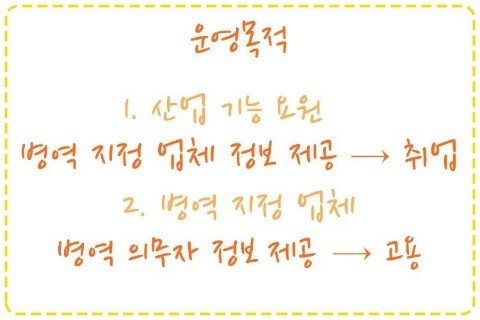 운영목적
1. 산업 기능 요원
병역 지정 업체 정보 제공 → 취업
2. 병역 지정 업체
병역 의무자 정보 제공 → 고용